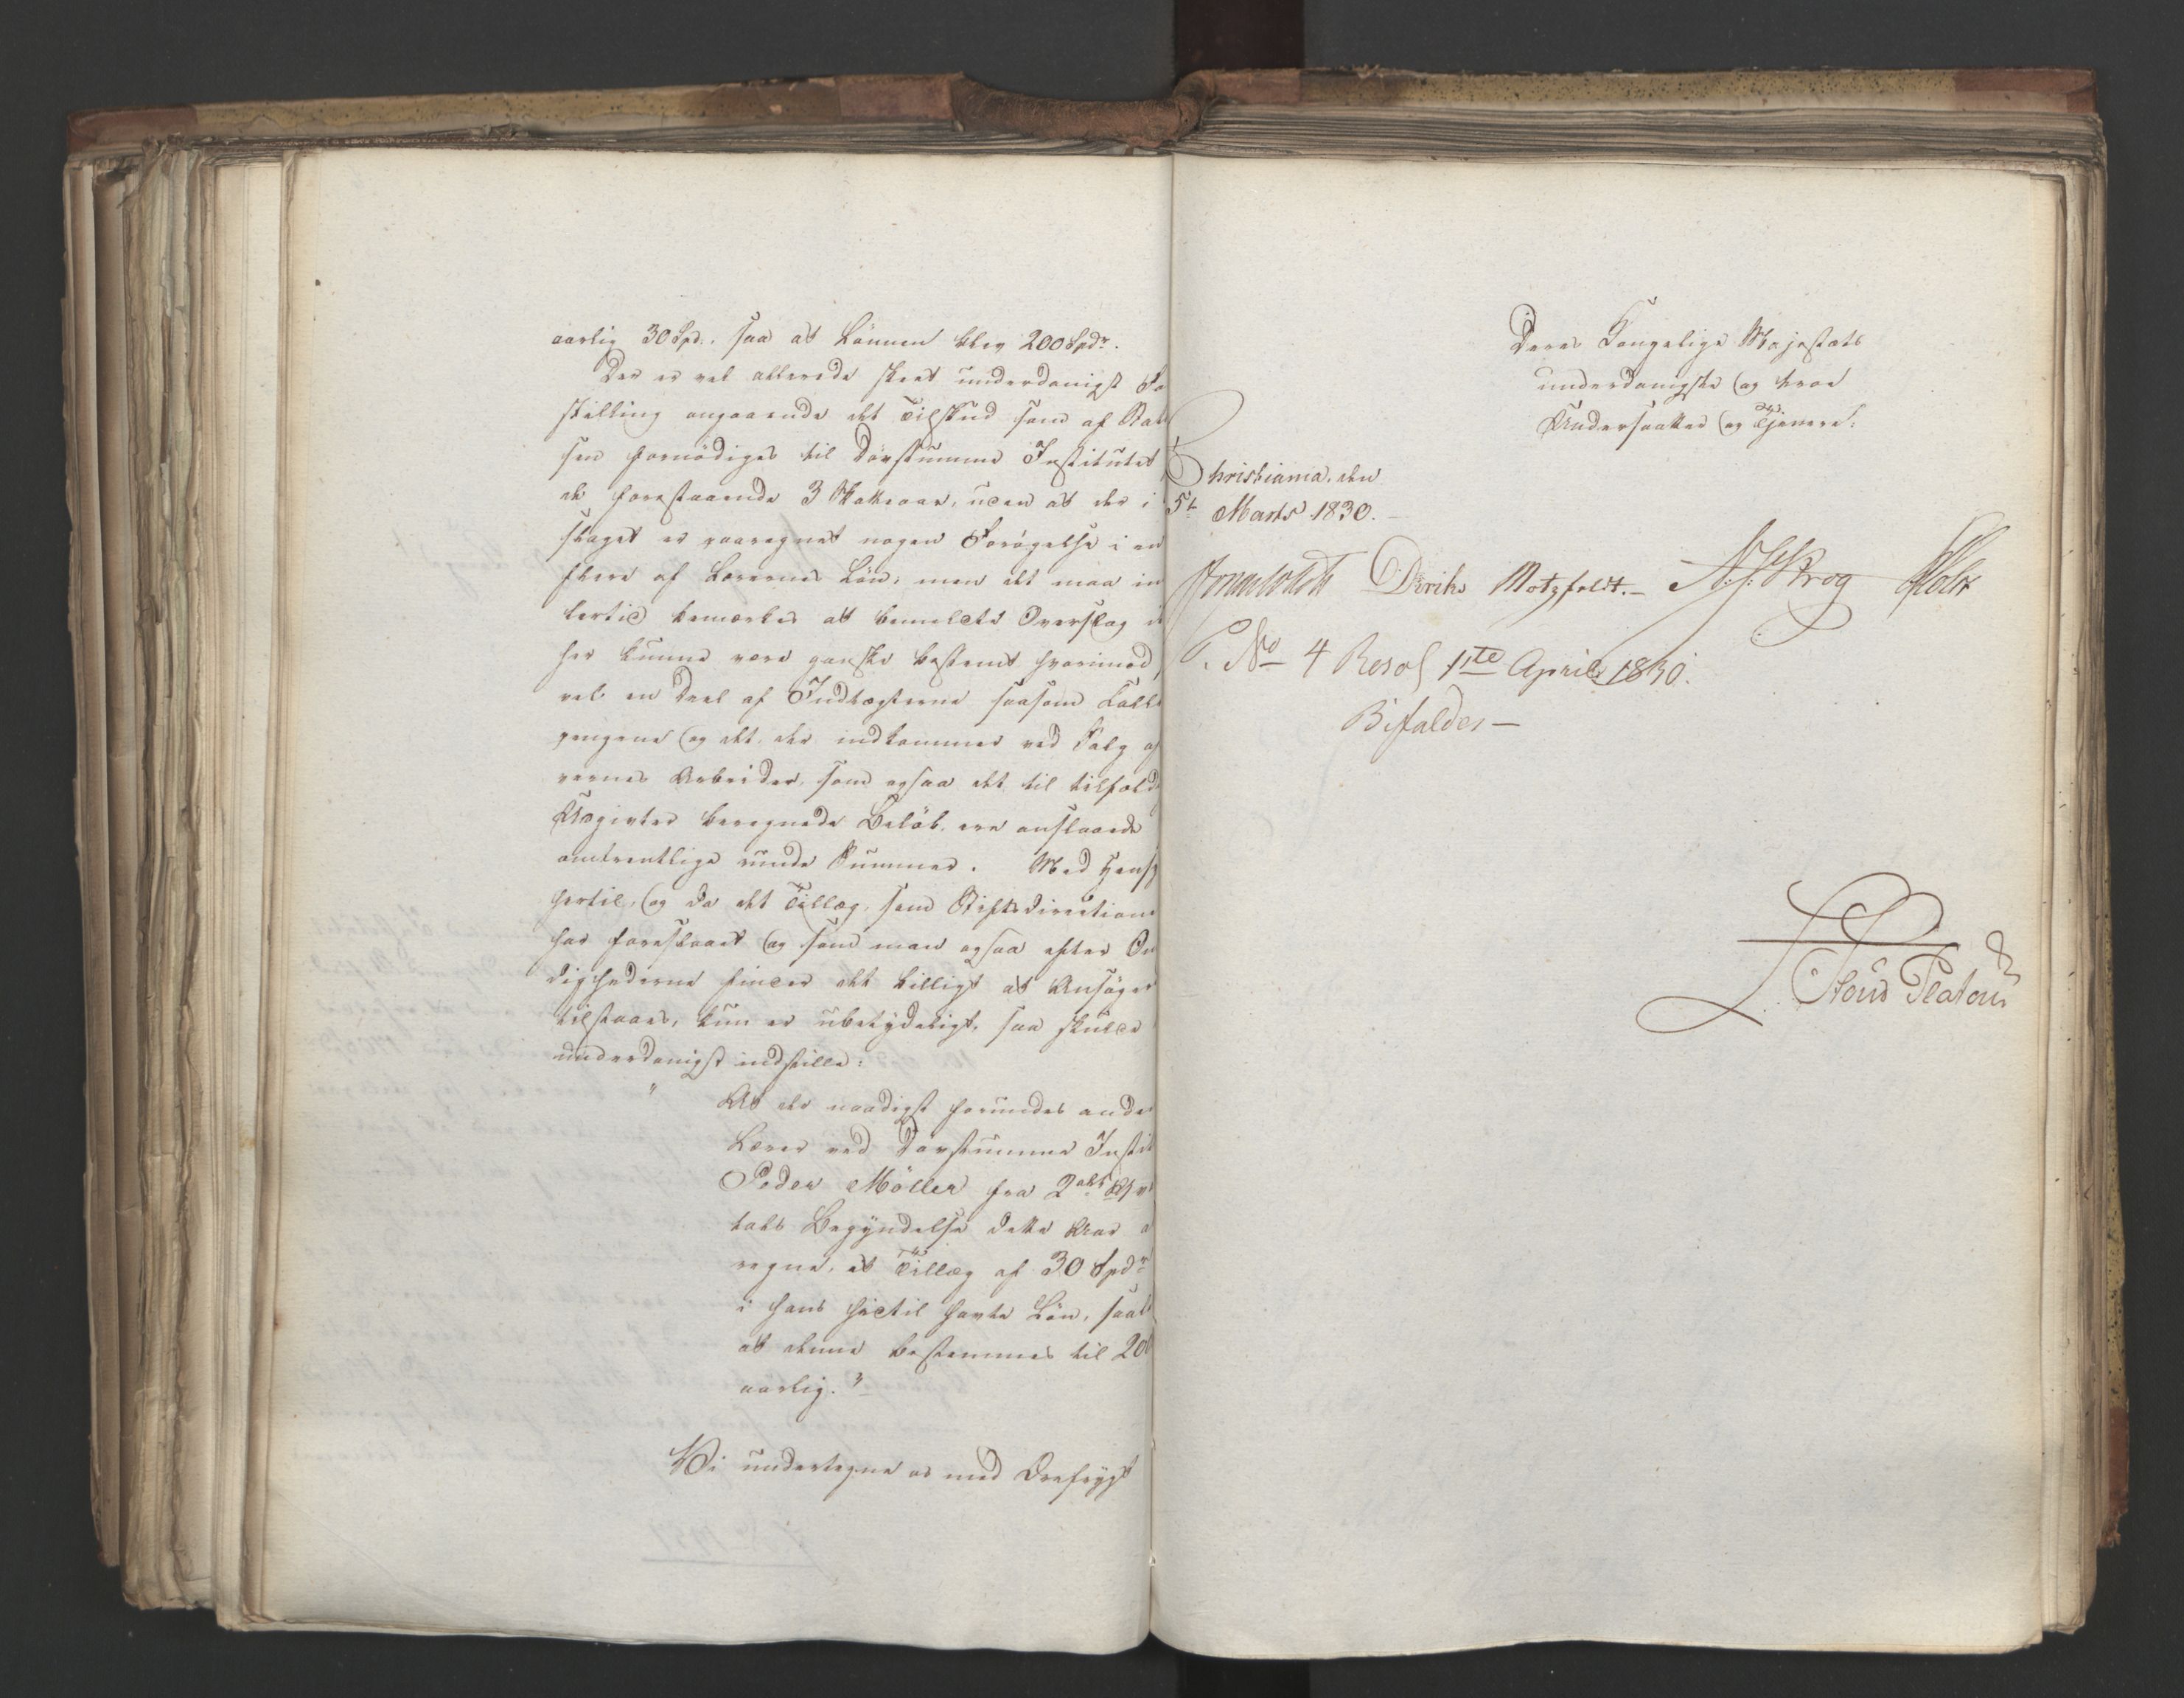 aarlig 30 Spd., saa at Lønnen blev 200 Spdr.
Der er vel allerede skeet underdanigst Fo
stilling angaaende det Tilskud som af Stats
sen fornødiges til Døvstumme Institutet
de forestaaende 3 Skatteaar, uden at der i
slaget er paaregnet nogen Forøgelse i en
flere af Lærernes Løn; men det maa im
lertid bemærkes at bemeldte Overslag i
her kunne være ganske bestemt hvorimod
vel en Deel af Indtægterne saasom
pengene og det, der indkommer ved Salg af
vernes Arbeider, som ogsaa det til tilfæld
Udgivter beregnede Beløb, ere anslaaede
omtrentlige runde Summer. Med Hensy
hertil, og da det Tillæg, som Stiftsdirectione
har foreslaaet og som man ogsaa efter Om
dighederne finder det billigt at Ansøger
tilstaaes, kun er ubetydeligt, saa skulde
underdanigst indstille:
" At der naadigst forundes anden
Lærer ved Døvstumme Instit
Peder Møller fra 2det Qvar
tals Begyndelse dette Aar a
regne, et Tillæg af 30 Spdr
i hans hidtil havte Løn, saal
at denne bestemmes til 200
aarlig."
Vi undertegne os med Ærefrygt
Deres Kongelige Majestæts
underdanigste og troe
Undersaatter og Tjenere.
Christiania, den
5te Marts 1830.
Diriks Motzfeldt. N. J. Krog Holst
No 4 Resol 1ste April 1830.
Bifaldes
Stoud Platou